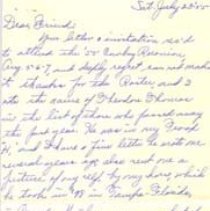 Sat. July 23-'55
Dear Friend:
Your letter & invitation rec'd to
attend the '55 Cowboy Reunion
Aug. 5-6-7, and deeply regret, can not make
it thanks for the Roster and I
note the name of Theodore Thomson
in the list of those who passed away
the past year. He was in my Troop
H, and I have a fine letter he wrote me
several years ago also sent me a
picture of my self, by my horse which
he took in '98 in Tampa Florida